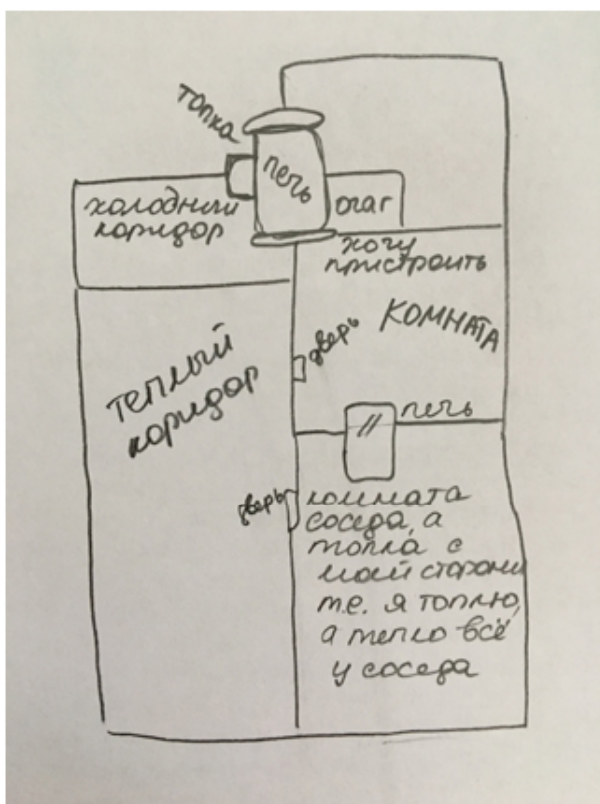 топка
печь
холодный
коридор
очаг
хочу
пристроить
КОМНАТА
дверь
теплый
коридор
печь
дверь
комната
соседа, а
топка с
моей стороны
т.е. я топлю,
а тепло всё
у соседа